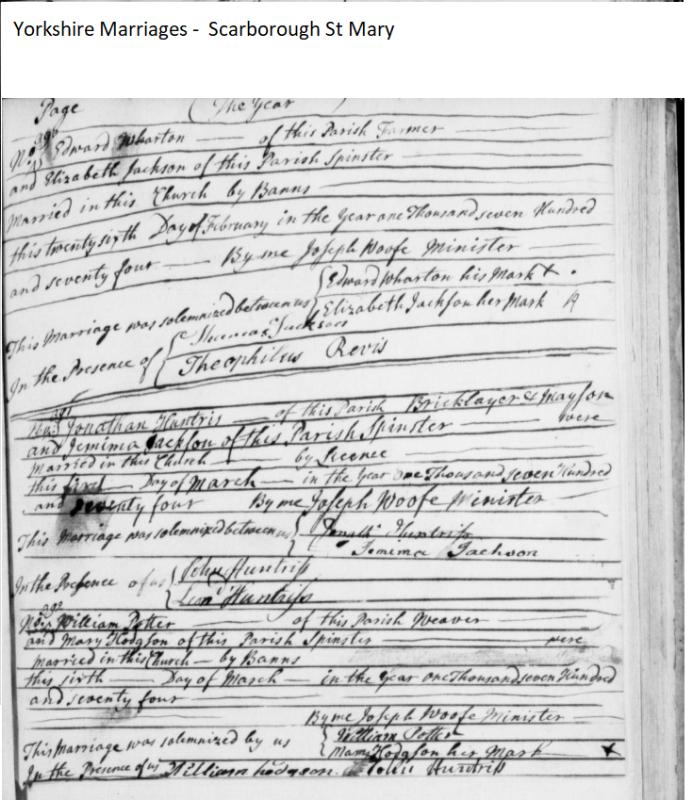 Yorkshire Marriages - Scarborough St Mary
Page (The Year
No. 390 Edward Wharton of this Parish Farmer
and Elizabeth Jackson of this Parish Spinster
Married in this Church by Banns
this twenty sixth Day of February in the Year one Thousand seven Hundred
and seventy four By me Joseph Woofe Minister
This Marriage was solemnized between us Edward Wharton his Mark X
Elizabeth Jackson her Mark
In the Presence of Jackson
Theophilus Revis
No. 391 Jonathan Huntris of this Parish Bricklayer & Mayson
and Jemima Jackson of this Parish Spinster were
Married in this Church by Licence
this first Day of March in the Year one Thousand seven Hundred
and seventy four By me Joseph Woofe Minister
This Marriage was solemnized between us Huntriss
Jemima Jackson
In the Presence of us John Huntriss
Leond Huntriss
No. 392 William Potter of this Parish Weaver
and Mary Hodgson of this Parish Spinster were
married in this Church by Banns
this sixth Day of March in the Year one Thousand seven Hundred
and seventy four
By me Joseph Woofe Minister
This Marriage was solemnized by us William Potter
Hodgson her Mark X
In the Presence of us William hodgson John Huntriss